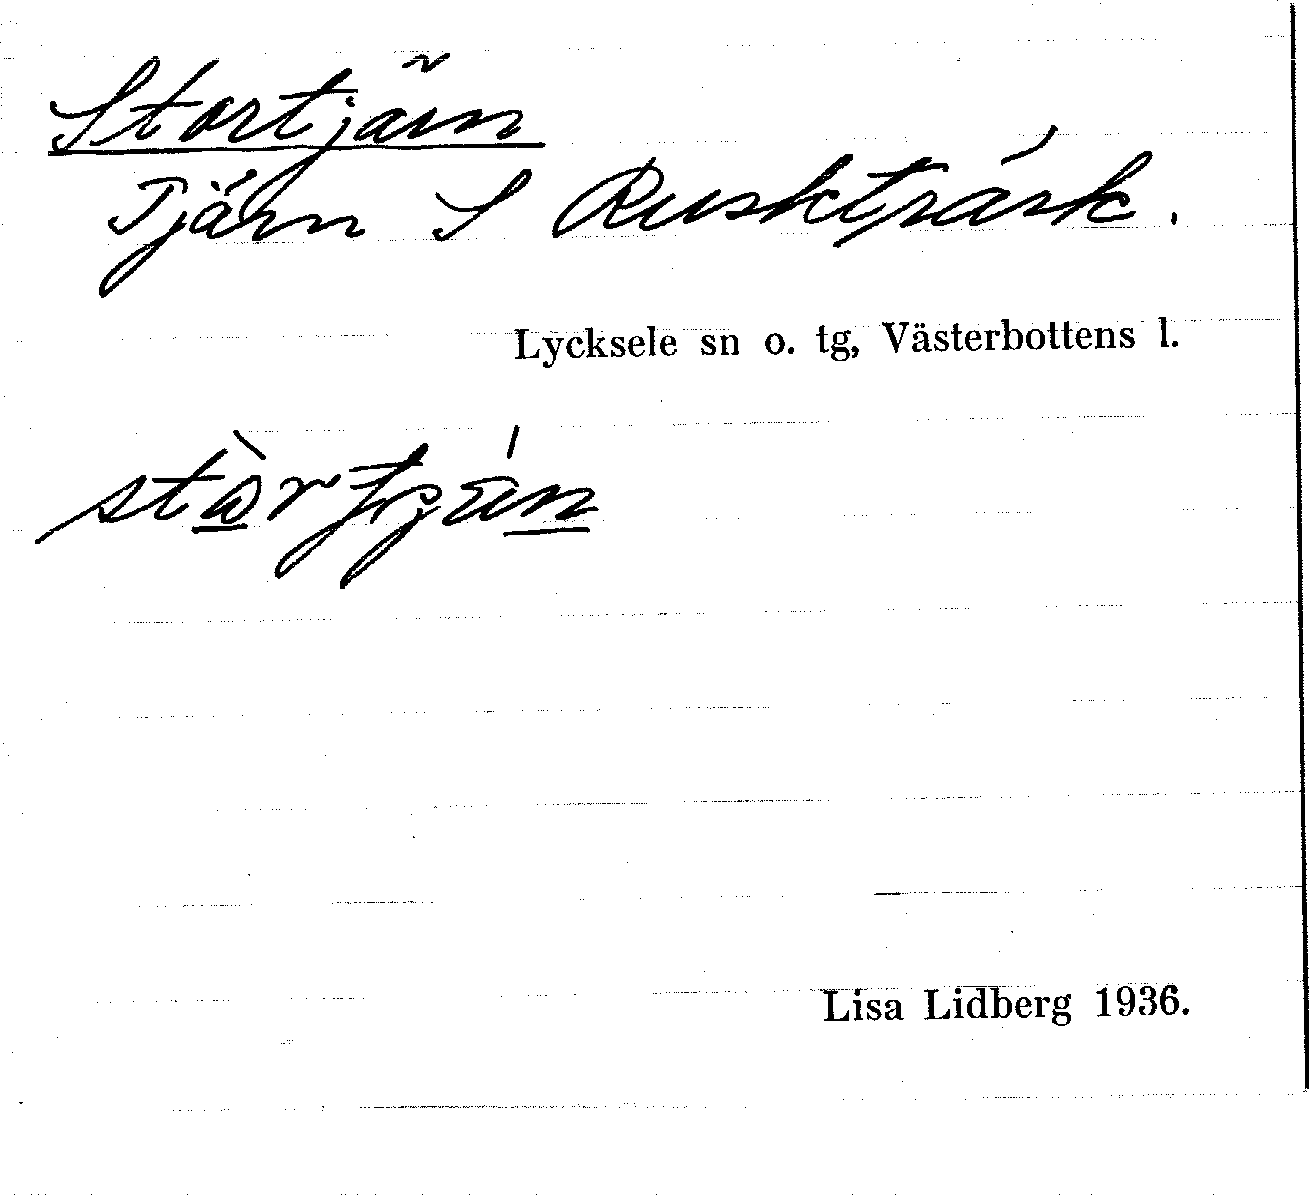 Stortjärn
Tjärn S Ruskträsk.
Lycksele sn o. tg, Västerbottens l.
Lisa Lidberg 1936.